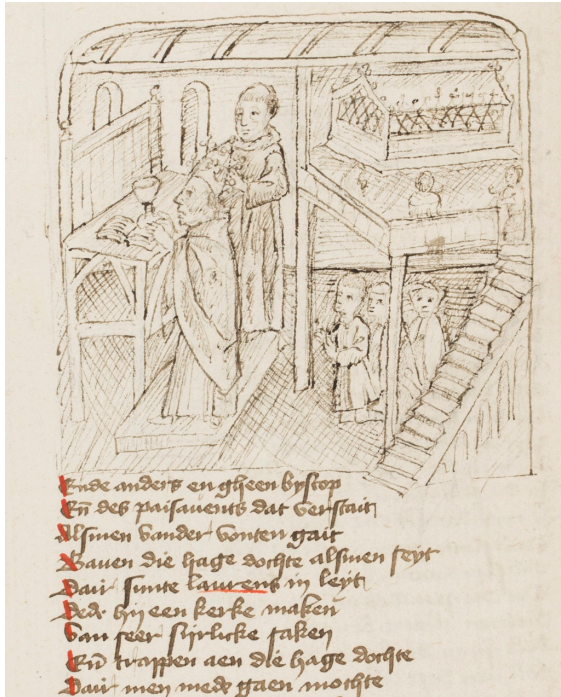 Ende anders en gheen byscop
En̄ des paisauents dat verstait
Alsmen vander vonten gait
Bauen die hage dochte alsmen seyt
Dair sunte laurens in leyt
Dede hij een kerke maken
Van seer sijrlicke saken
En̄ trappen aen die hage dochte
Dair men mede gaen mochte